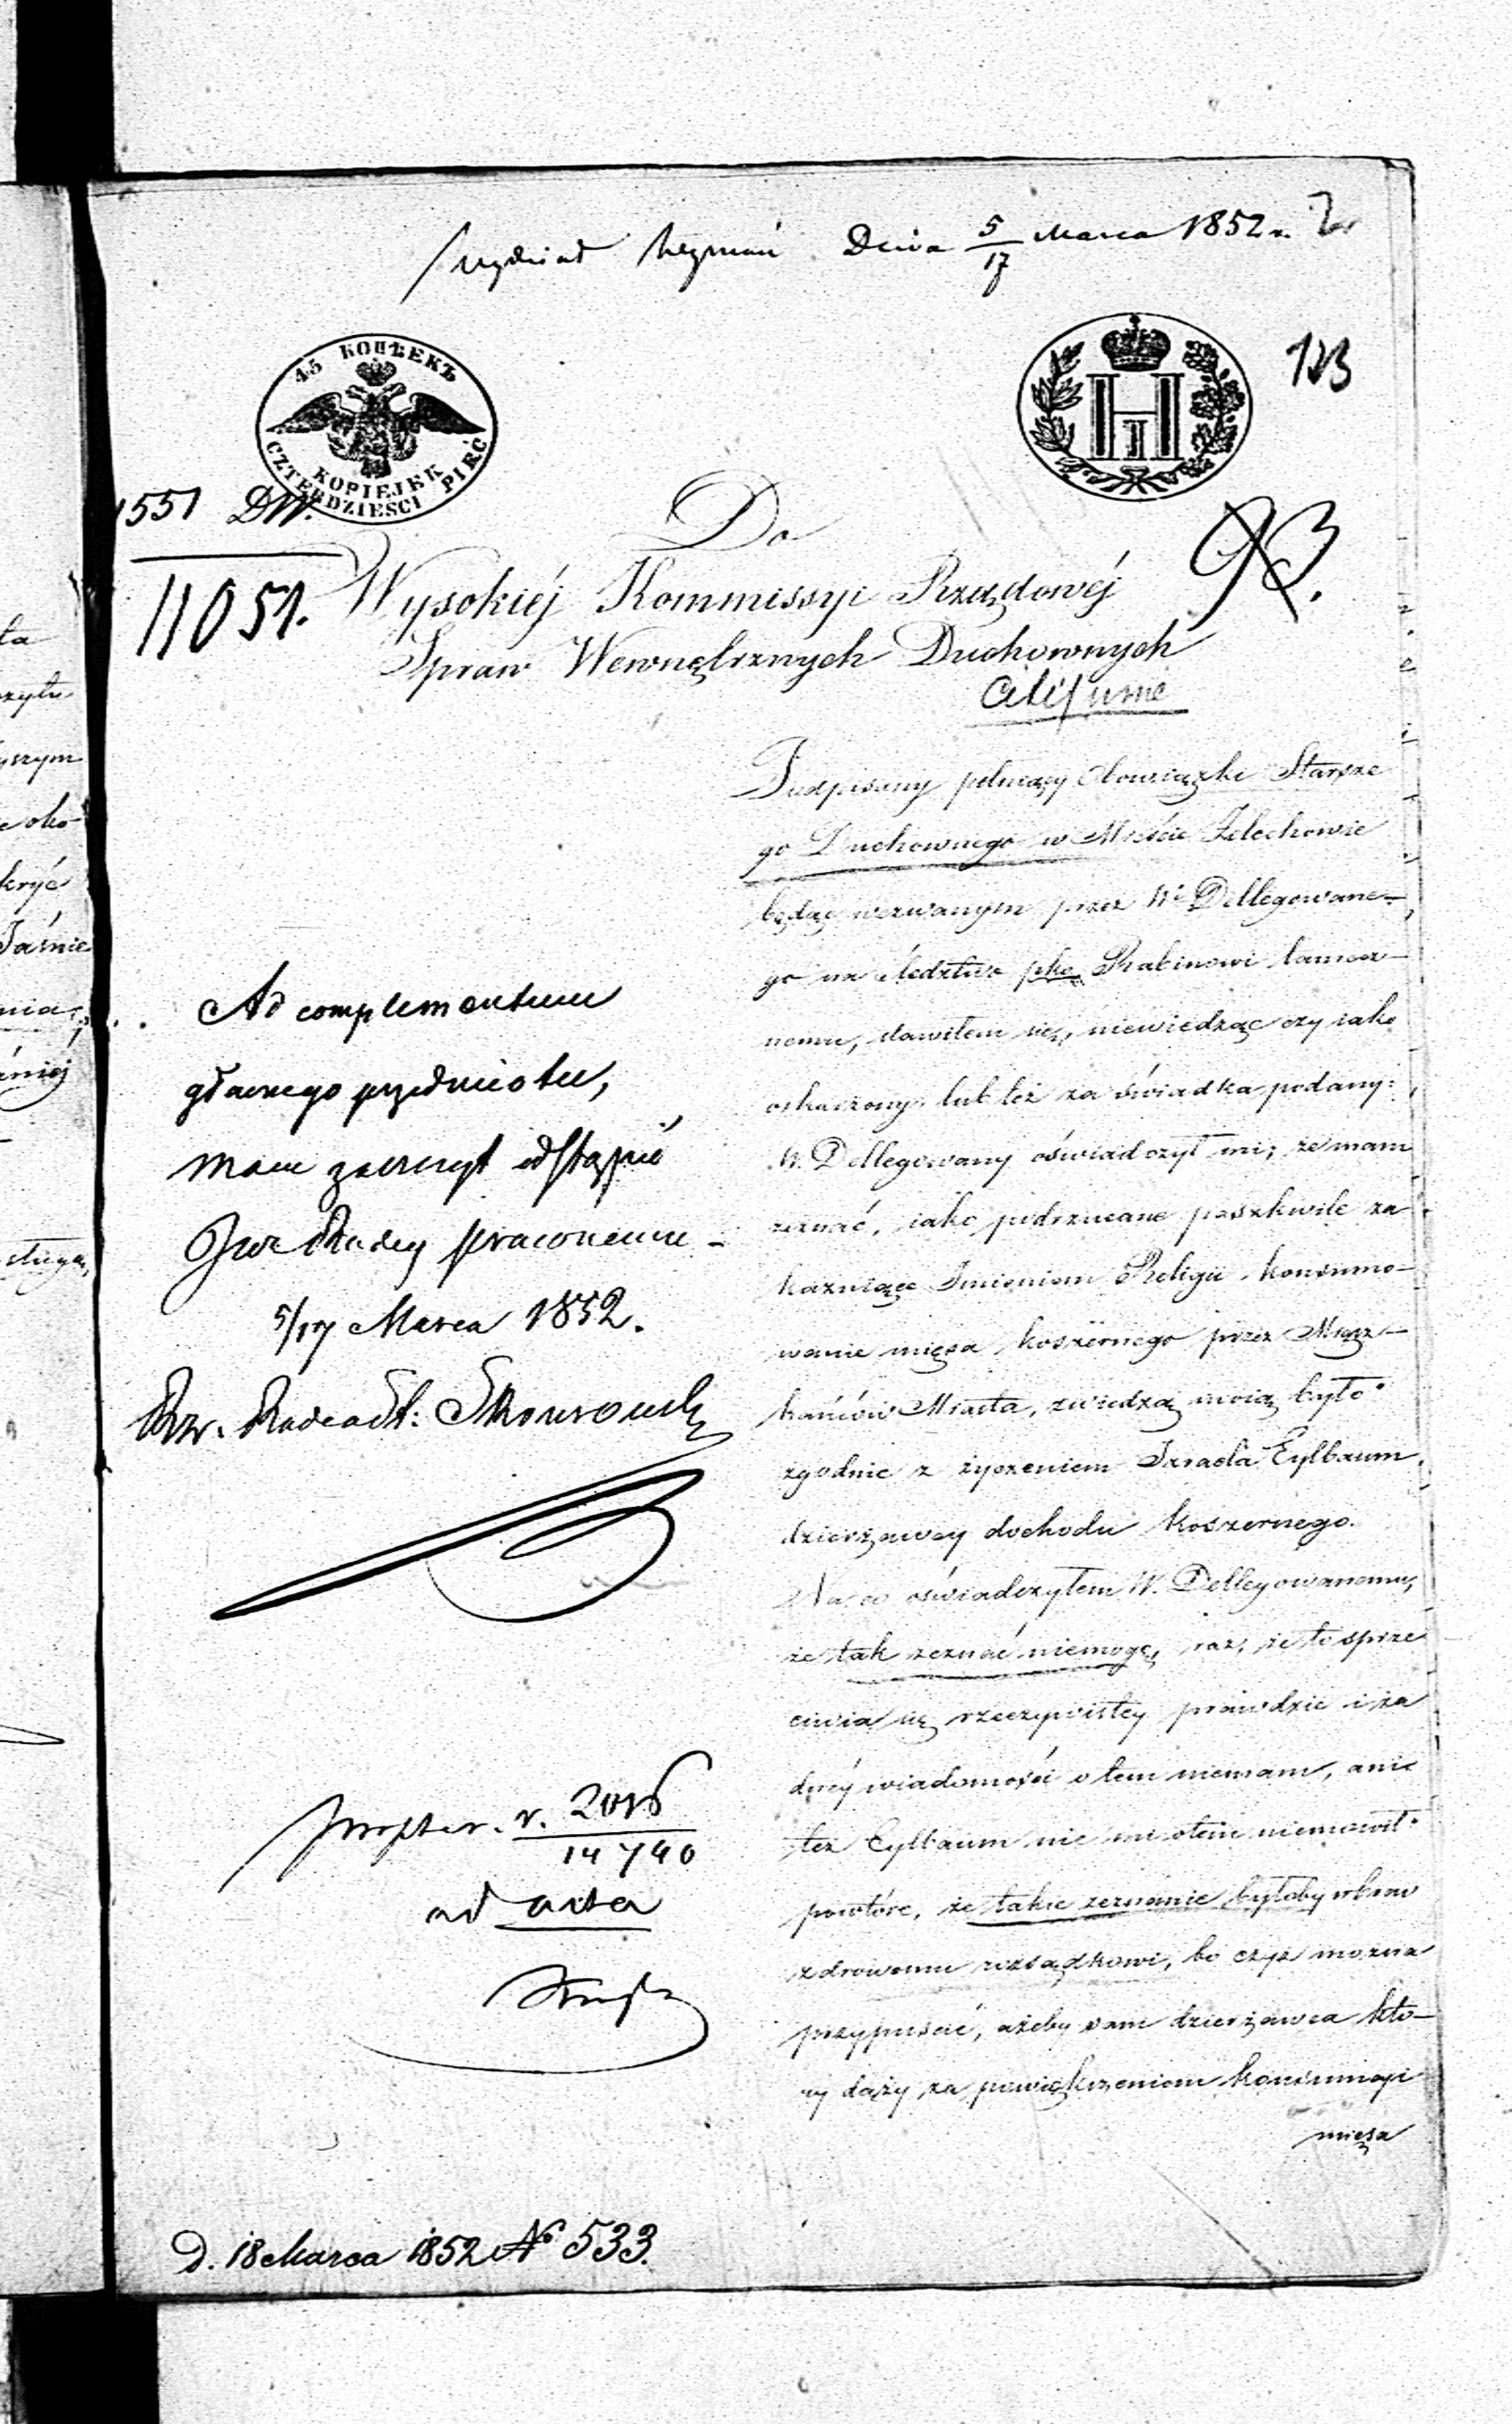 Dnia 5/17 Marca 1852 r.
45 КОПѢЕКЪ
KOPIEJEK
CZTERDZIEŚCI PIĘĆ
НI
123
1551 DW.
11051.
93.
Do
Wysokiéj Kommissyi Rządowéj
Spraw Wewnętrznych Duchownych
Podpisany pełniący Obowiązki Starsze
go Duchownego w Mieście Żelechowie
będąc wezwanym przez W Dellegowane-
go na śledztwo pko Rabinowi tamecz-
nemu, stawiłem się, niewiedząc czy iako
oskarzony, lub też za świadka podany:
W. Dellegowany oświadczył mi, że mam
zeznać, iako podrzucane paszkwile za
kazuiące Imieniem Religii konsumo-
wanie mięsa koszernego przez Miesz-
kańców Miasta, z wiedzą moią było
zgodnie z życzeniem Izraela Eylbaum
dzierżawcy dochodu koszernego.
Na co oświadczyłem W. Dellegowanemu,
że tak zeznać niemogę, raz, że to sprze
ciwia się rzeczywistey prawdzie i ża
dnéj wiadomości o tem niemam, ani
też Eylbaum nic mi o tem niemowił
powtóre, że takie zeznanie byłoby wbrew
zdrowemu rozsądkowi, bo czyż można
przypuścić, ażeby sam dzierżawca któ-
ry dąży za powiększeniem konsumcyi
mięsa
Ad complementum
głównego przedmiotu,
mam zaszczyt odstąpić
5/17 Marca 1852.
Rz. Radca St: Skowroński
14740
ad acta
D. 18 Marca 1852 No 533.